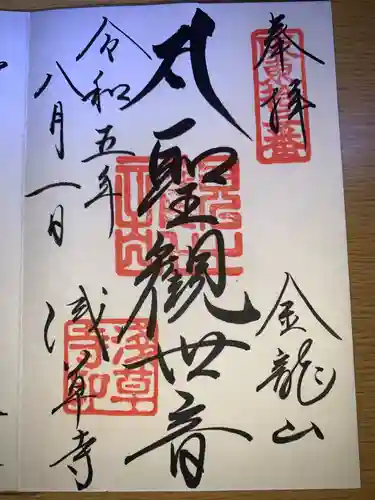 奉拝
坂東拾三番
金龍山
聖観世音
令和五年
八月一日
浅草寺